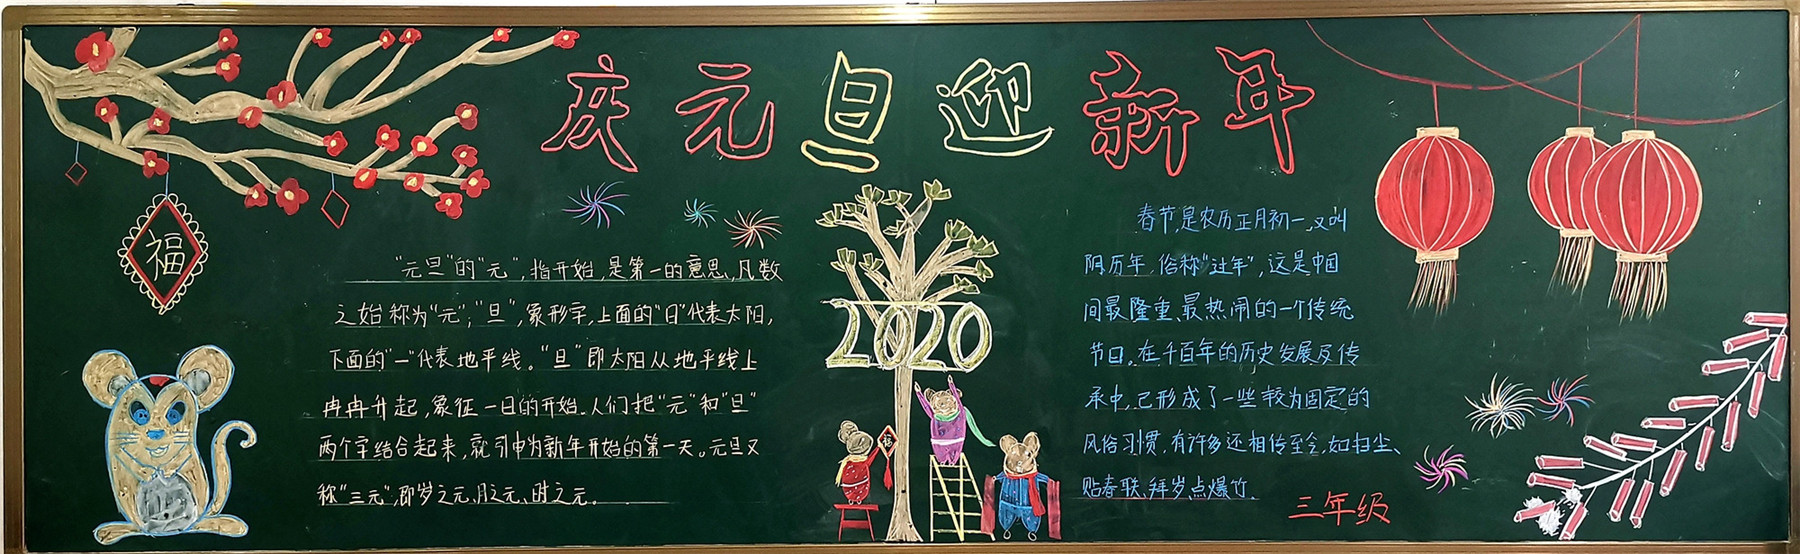 庆元旦迎新年
福
"元旦"的"元",指开始,是第一的意思,凡数
之始称为"元";"旦",象形字,上面的"日"代表太阳,
下面的"一"代表地平线。"旦"即太阳从地平线上
冉冉升起,象征一日的开始.人们把"元"和"旦"
两个字结合起来,就引申为新年开始的第一天。元旦又
称"三元",即岁之元、月之元、时之元。
2020
福
春节,是农历正月初一,又叫
阴历年,俗称"过年",这是中国
间最隆重、最热闹的一个传统
节日。在千百年的历史发展及传
承中,已形成了一些较为固定的
风俗习惯,有许多还相传至今,如扫尘、
贴春联、拜岁、点爆竹.
三年级